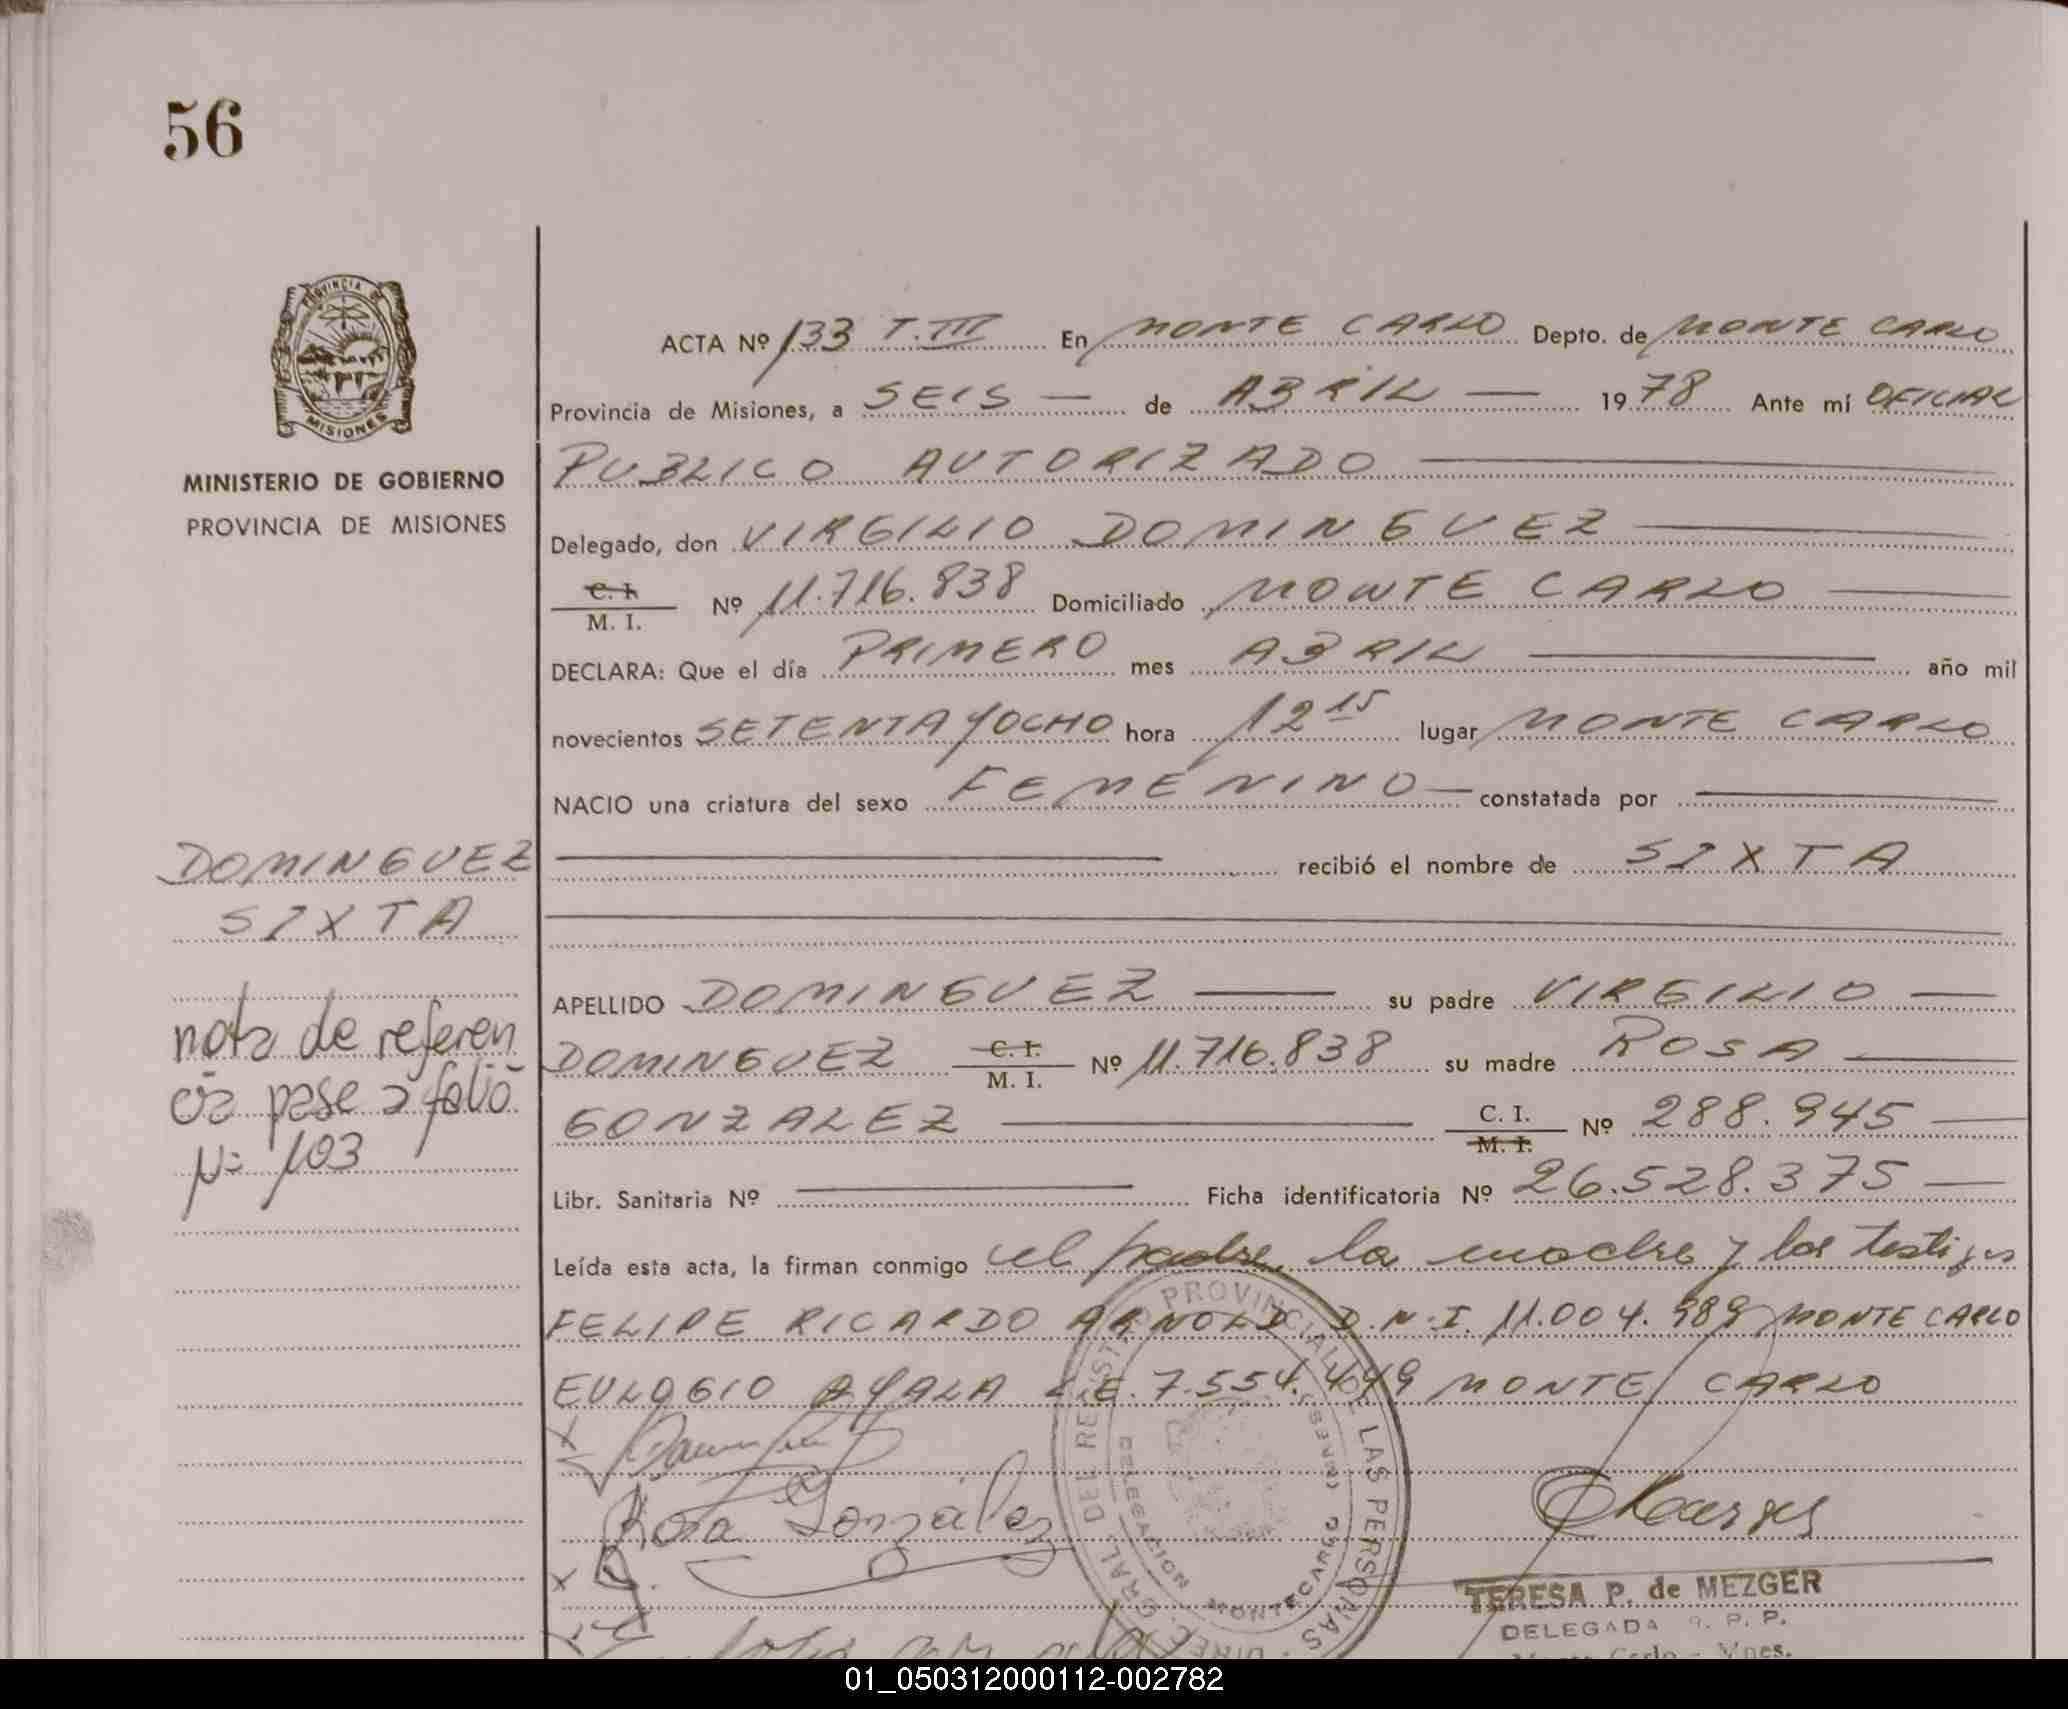 56
PROVINCIA DE
MISIONES
MINISTERIO DE GOBIERNO
PROVINCIA DE MISIONES
ACTA Nº 133 T. III En MONTE CARLO Depto. de MONTE CARLO
Provincia de Misiones, a SEIS — de ABRIL — 1978 Ante mí OFICIAL
PUBLICO AUTORIZADO —
Delegado, don VIRGILIO DOMINGUEZ —
C. I.
M. I. Nº 11.716.838 Domiciliado MONTE CARLO —
DECLARA: Que el día PRIMERO mes ABRIL — año mil
novecientos SETENTA Y OCHO hora 12 15 lugar MONTE CARLO
NACIO una criatura del sexo FEMENINO — constatada por —
— recibió el nombre de SIXTA
DOMINGUEZ
SIXTA
nota de referen
cia pase a folio
Nº 103
APELLIDO DOMINGUEZ — su padre VIRGILIO —
DOMINGUEZ C. I. M. I. Nº 11.716.838 su madre ROSA —
GONZALEZ — C. I. M. I. Nº 288.945 —
Libr. Sanitaria Nº — Ficha identificatoria Nº 26.528.375 —
Leída esta acta, la firman conmigo el padre, la madre y los testigos
FELIPE RICARDO ARNOLD D.N.I. 11.004.989 MONTE CARLO
EULOGIO AYALA L.E. 7.554.449 MONTE CARLO
Rosa González
DIREC. GRAL. DEL REGISTRO PROVINCIAL DE LAS PERSONAS
DELEGACION MONTECARLO (MNES.)
TERESA P. de MEZGER
DELEGADA R. P. P.
Monte Carlo - Mnes.
01_050312000112-002782